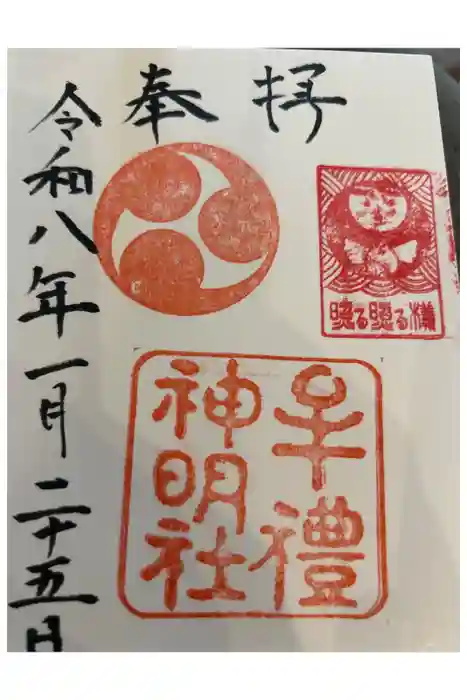 奉拝
照る照る様
牟禮
神明社
令和八年一月二十五日